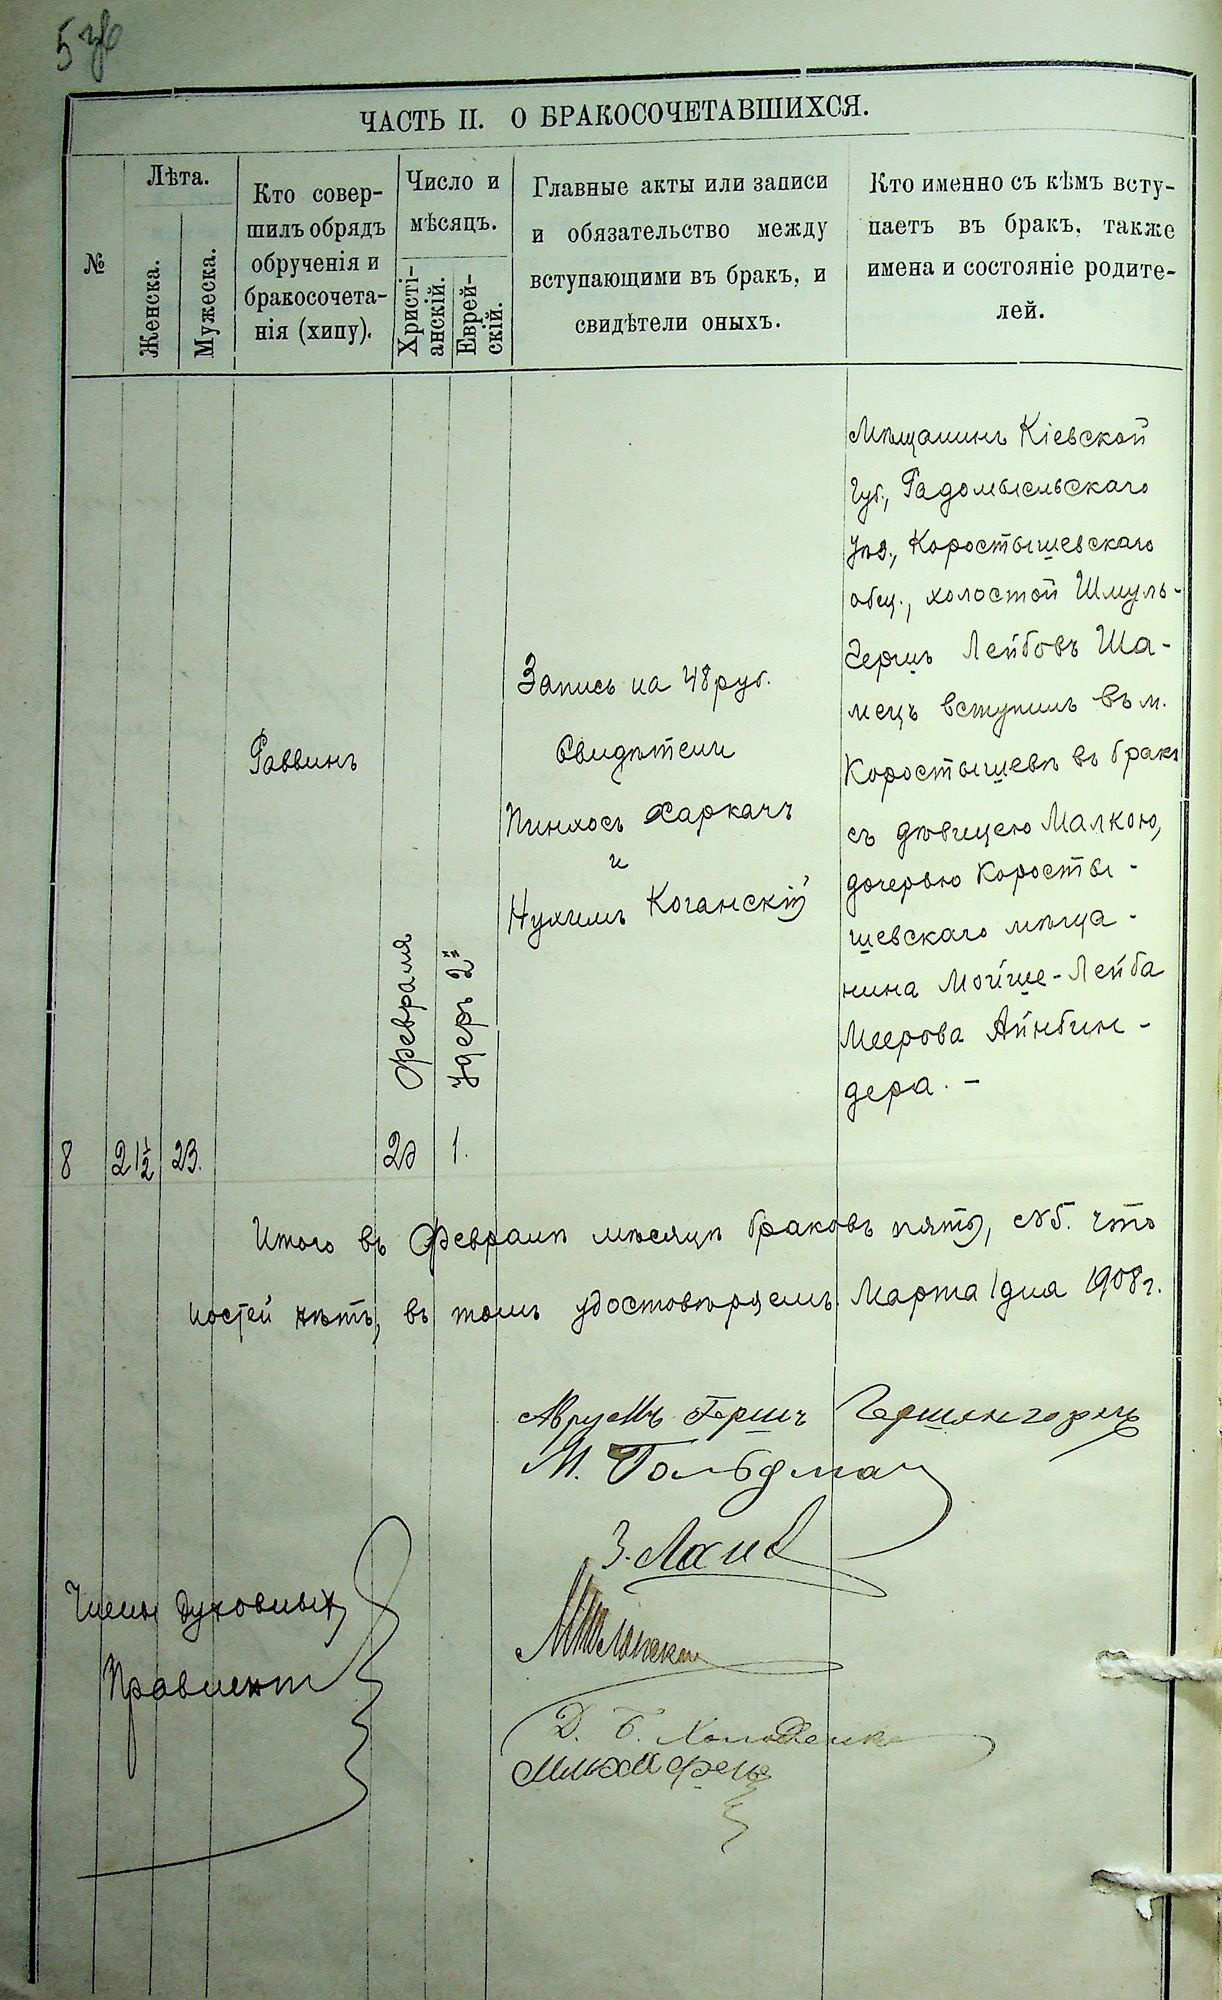 5
ЧАСТЬ II. О БРАКОСОЧЕТАВШИХСЯ.
№
Лѣта.
Женска.
Мужеска.
Кто совер-
шилъ обрядъ
обрученія и
бракосочета-
нія (хипу).
Число и
мѣсяцъ.
Христі-
анскій.
Еврей-
скій.
Главные акты или записи
и обязательство между
вступающими въ бракъ, и
свидѣтели оныхъ.
Кто именно съ кѣмъ всту-
паетъ въ бракъ, также
имена и состояніе родите-
лей.
8
21½
23.
Раввинъ
Февраля
20
Удеръ 2й
1.
Запись на 48 руб.
Свидѣтели
Пинхосъ Харкачъ
и
Нухимъ Коганскій
Мѣщанинъ Кіевской
губ., Радомысльскаго
уѣз., Коростышевскаго
общ., холостой Шмуль-
Гершъ Лейбовъ Ша-
мецъ вступилъ въ м.
Коростышевѣ въ бракъ
съ дѣвицею Малкою,
дочерью Коросты-
шевскаго мѣща-
нина Мойше-Лейба
Меерова Айнбин-
дера. —
Итого въ Февралѣ мѣсяцѣ браковъ пять, что
ностей нѣтъ, въ томъ удостовѣряемъ. Марта 1 дня 1908 г.
Члены Духовныхъ
Правлений
Аврумъ Гершъ
М. Гольдман
З.
Д. Б. Холоденко